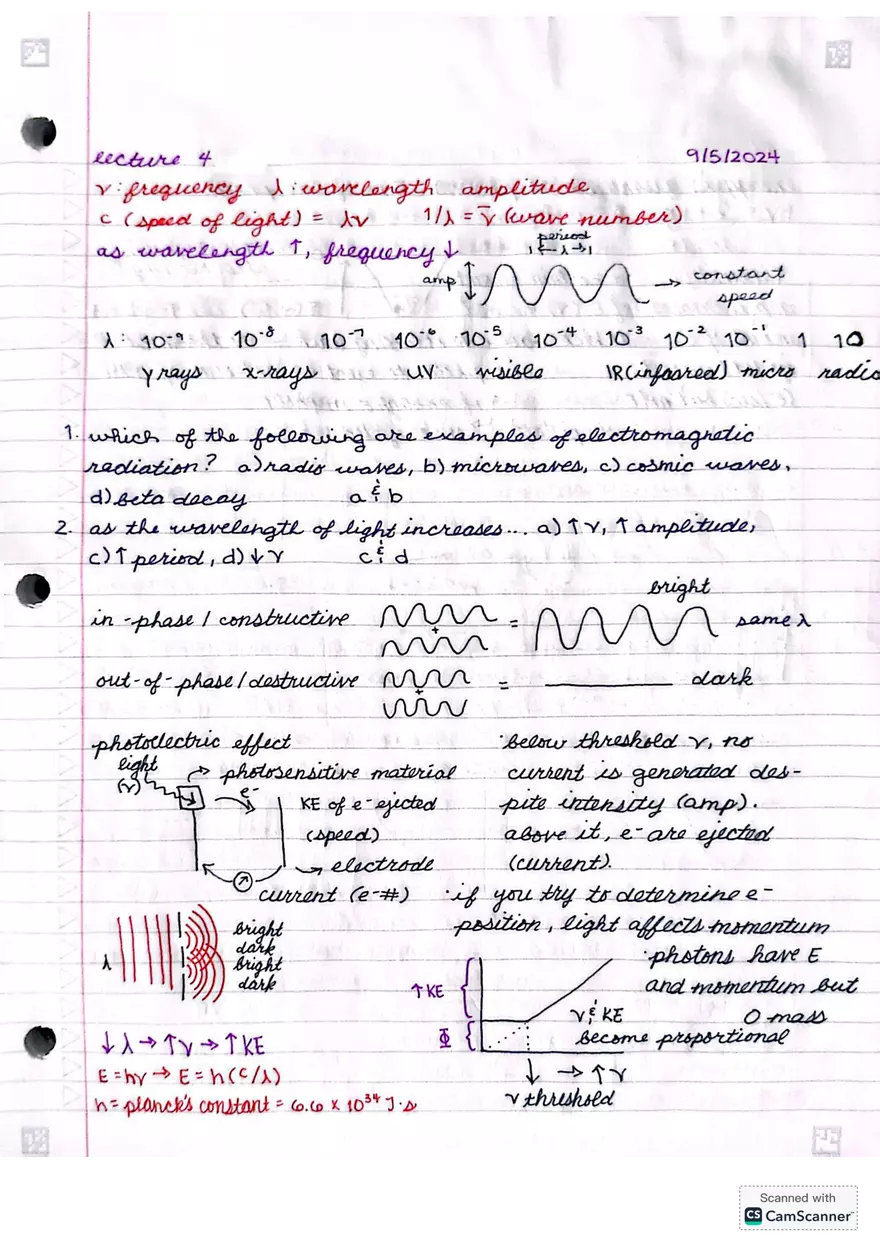 lecture 4 9/5/2024
ν: frequency λ: wavelength amplitude
c (speed of light) = λν 1/λ = ν̄ (wave number)
as wavelength ↑, frequency ↓
period
|← λ →|
amp → constant
speed
λ: 10⁻⁹ 10⁻⁸ 10⁻⁷ 10⁻⁶ 10⁻⁵ 10⁻⁴ 10⁻³ 10⁻² 10⁻¹ 1 10
γ rays x-rays UV visible IR (infoared) micro radio
1. which of the following are examples of electromagnetic
radiation? a) radio waves, b) microwaves, c) cosmic waves,
d) beta decay a & b
2. as the wavelength of light increases... a) ↑ ν, ↑ amplitude,
c) ↑ period, d) ↓ ν c & d
bright
in-phase / constructive + = same λ
out-of-phase / destructive + = dark
photoelectric effect
light
(ν)
→ photosensitive material
e-
KE of e- ejected
(speed)
→ electrode
current (e-#)
· below threshold ν, no
current is generated des-
pite intensity (amp).
above it, e- are ejected
(current).
· if you try to determine e-
position, light affects momentum
· photons have E
and momentum but
0 mass
λ
bright
dark
bright
dark
↑ KE
Φ
ν & KE
become proportional
↓ → ↑ ν
ν threshold
↓ λ → ↑ ν → ↑ KE
E = hν → E = h(c/λ)
h = planck's constant = 6.6 x 10³⁴ J·s
Scanned with
CS CamScanner